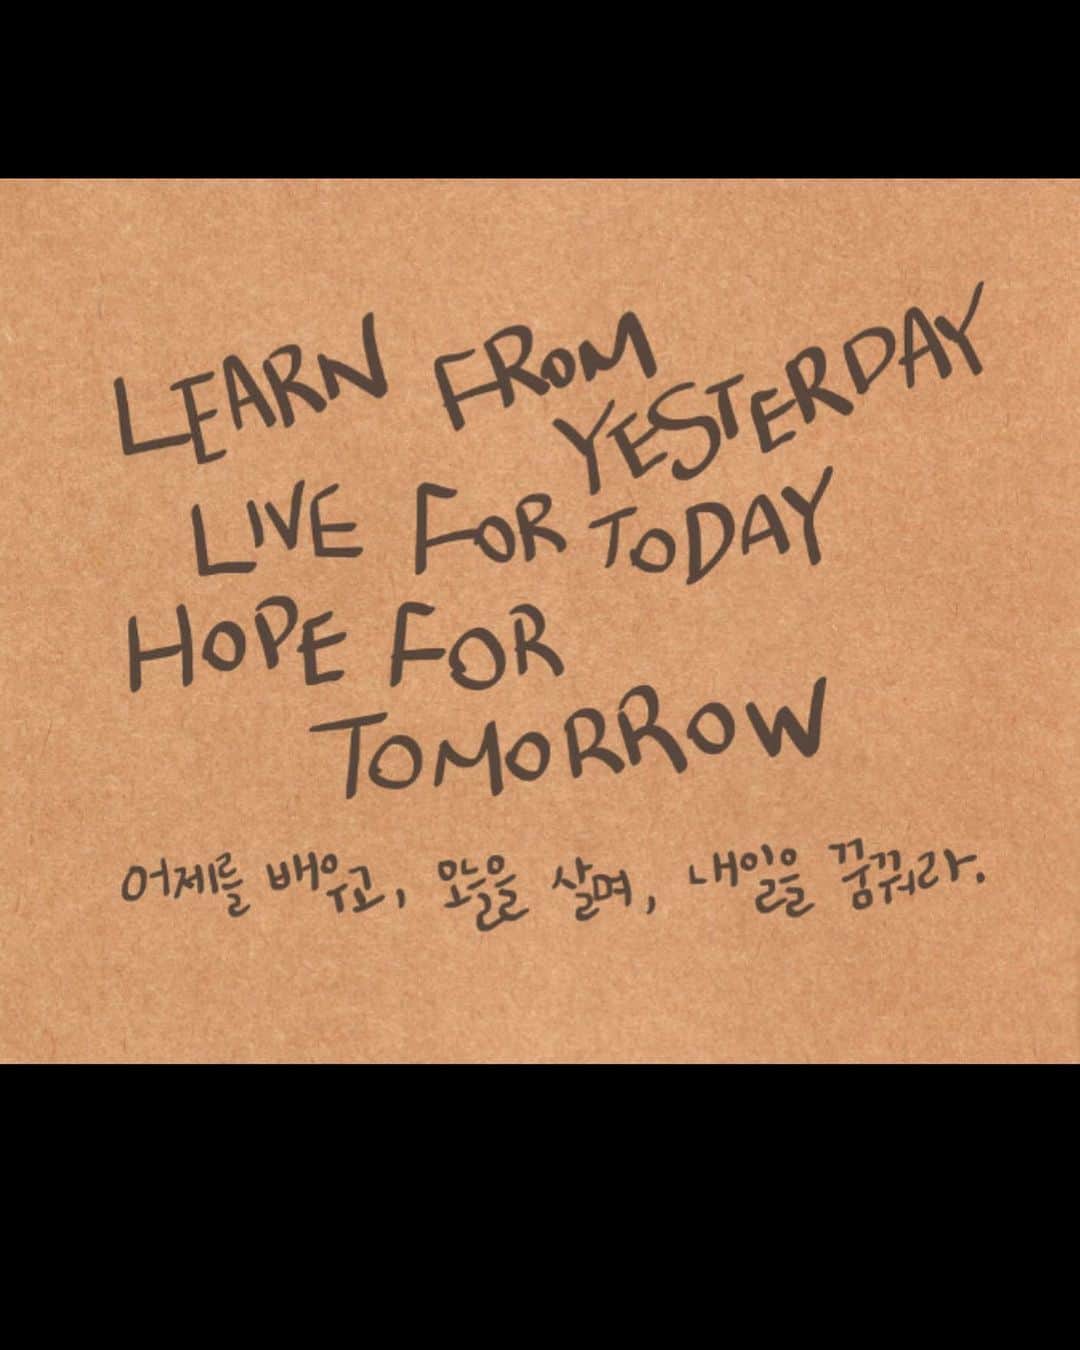 LEARN FROM
YESTERDAY
LIVE FOR TODAY
HOPE FOR
TOMORROW
어제를 배우고, 오늘을 살며, 내일을 꿈꿔라.